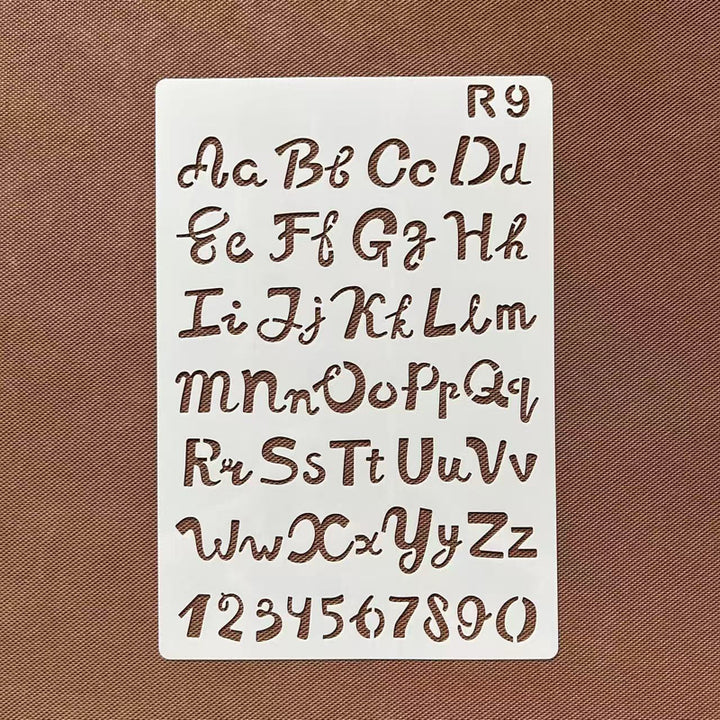 R9
Aa Bb Cc Dd
Ee Ff Gg Hh
Ii Jj Kk L l m
M N n O o P p Q q
R r S s T t U u V v
W w X x Y y Z z
1234567890